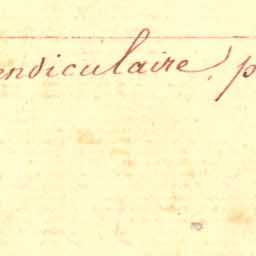 endiculaire, p